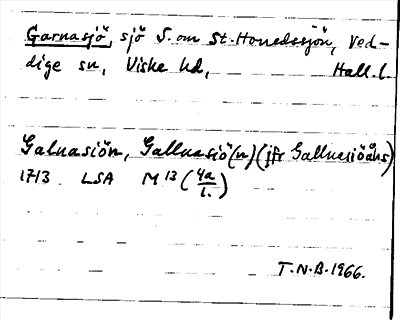 Garnasjö, sjö S. om St. Hornedssjön, Ved-
dige sn, Viske hd, Hall. l.
Galnasiön, Gallnasiö(n) (jfr Gallnesiöåhs)
1713 LSA M 13 (4a/1.)
T.N.B. 1966.